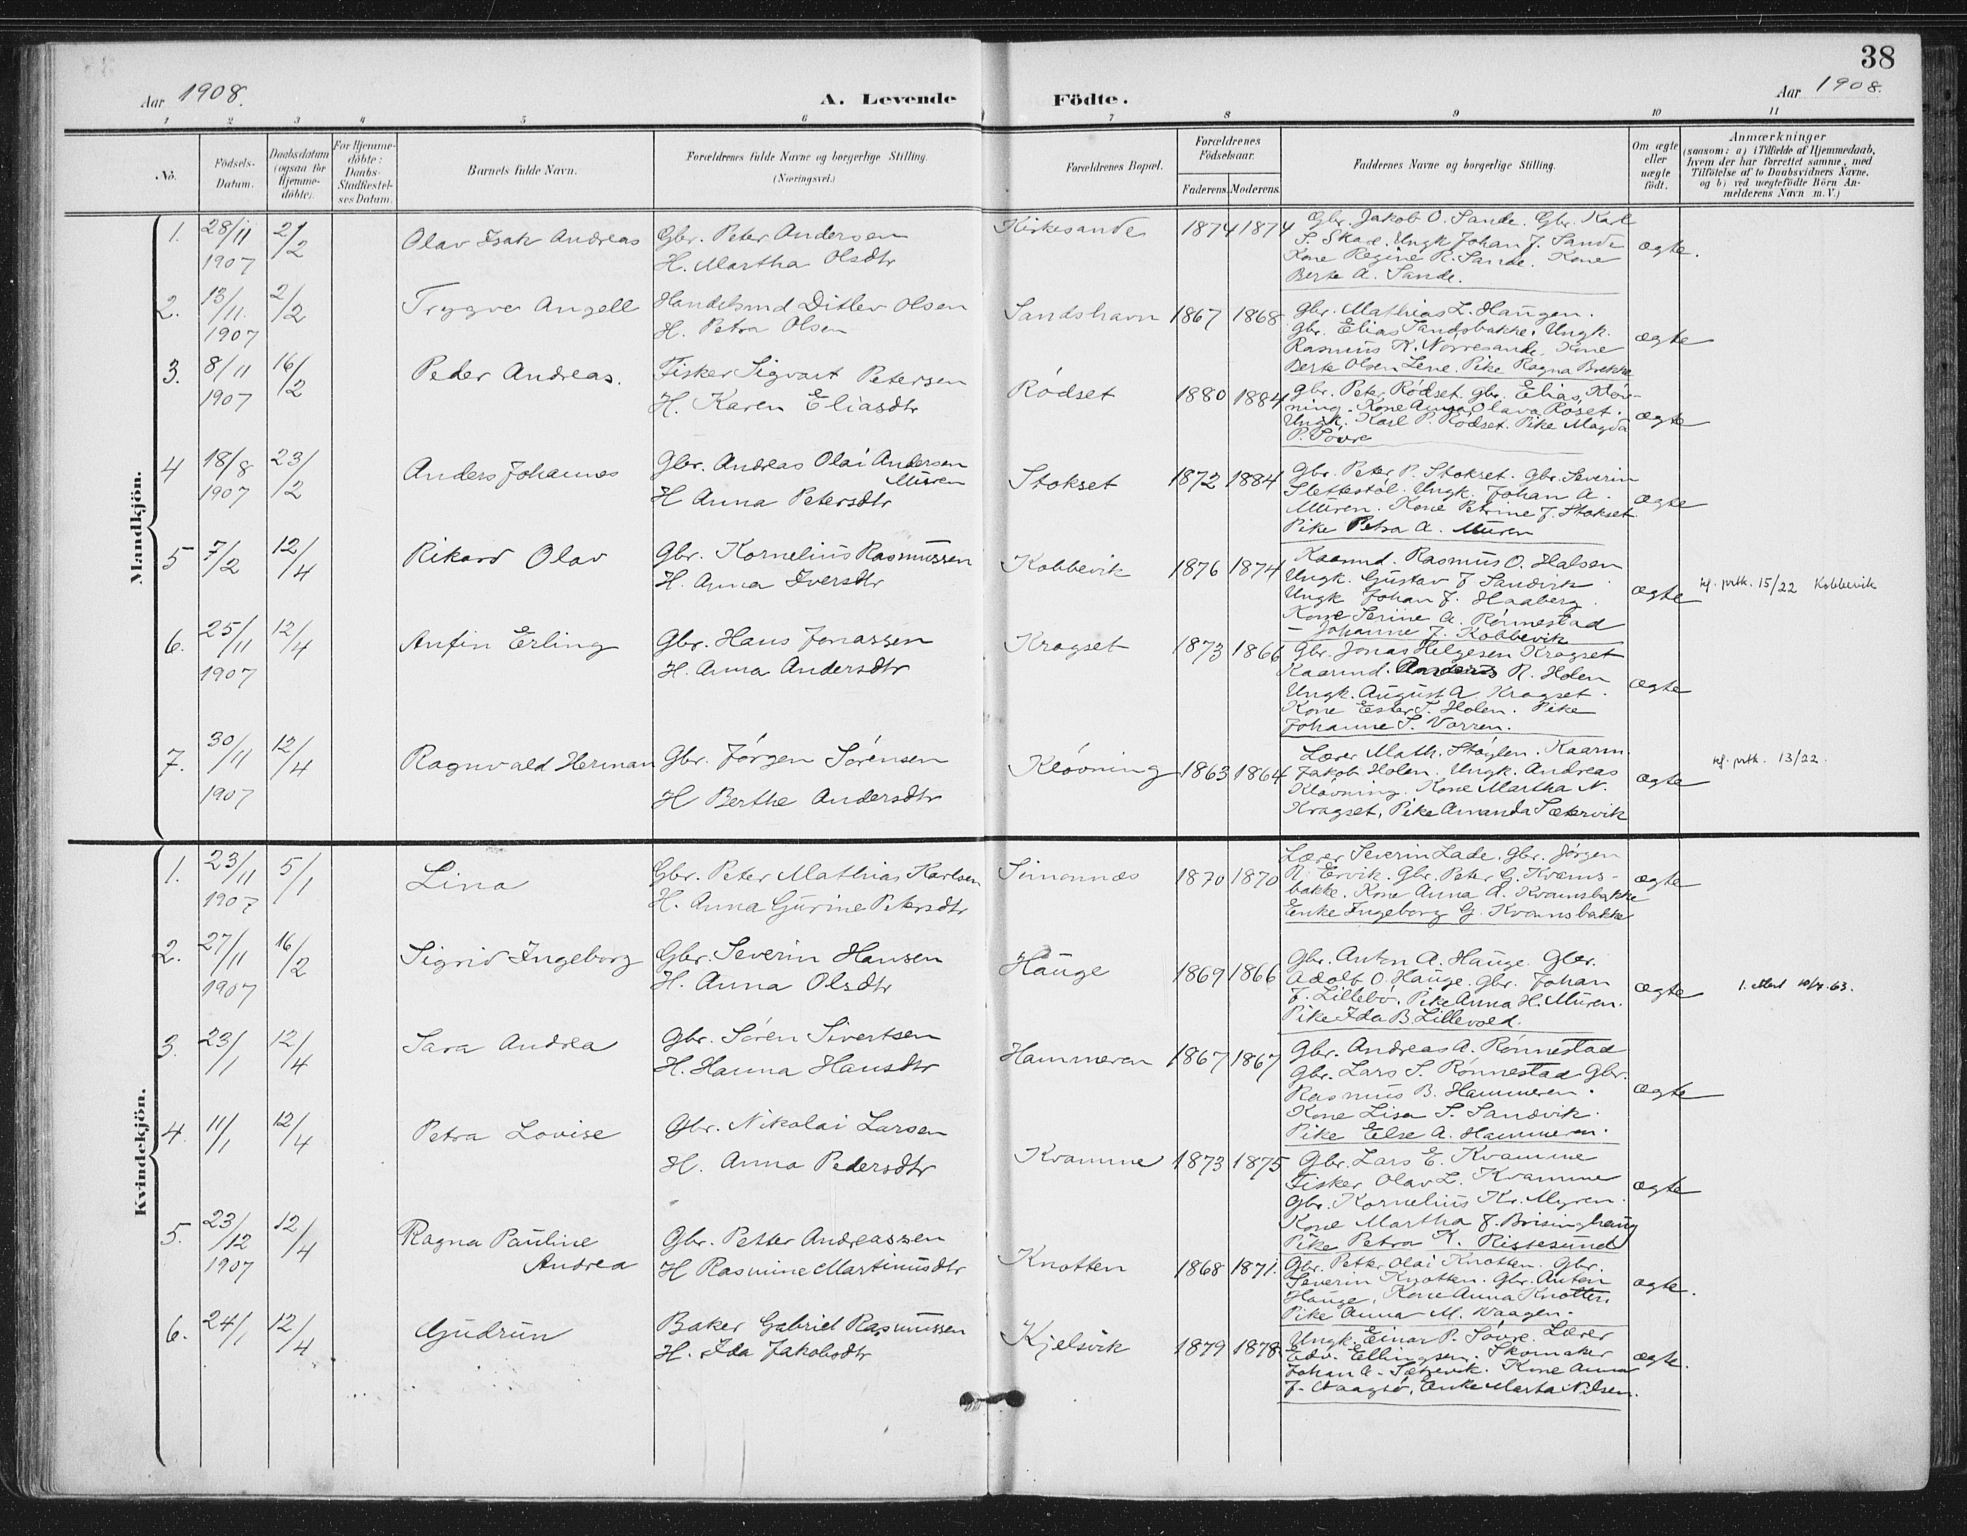 38
Aar 1908.
A. Levende Födte.
Aar 1908.
1 2 3 4 5 6 7 8 9 10 11
No.
Födsels-
Datum.
Daabsdatum
(ogsaa for
Hjemme-
döbte).
For Hjemme-
döbte:
Daabs-
Stadfæstel-
ses Datum.
Barnets fulde Navn.
Forældrenes fulde Navne og borgerlige Stilling.
(Næringsvei.)
Forældrenes Bopæl.
Forældrenes
Födselsaar.
Faderens. Moderens.
Faddernes Navne og borgerlige Stilling.
Om ægte
eller
uægte
födt.
Anmærkninger
(saasom: a) i Tilfælde af Hjemmedaab,
hvem der har forrettet samme, med
Tilföielse af to Daabsvidners Navne,
og b) ved uægtefödte Börn An-
melderens Navn m.V.)
Mandkjön.
1. 28/11 1907 2/2 Olav Isak Andreas
Gbr. Peter Andersen
H. Martha Olsdtr
Kirkesande 1874 1874
Gbr. Jakob O. Sande. Gbr. Karl
S. Skare. Ungk Johan J. Sande
Kone Regine R. Sande. Kone
Berte A. Sande.
ægte.
2. 13/11. 1907 2/2 Trygve Angell
Handelsmd Ditlev Olsen
H. Petra Olsen
Sandshavn 1867 1868
Gbr. Mathias L. Haugen.
Gbr. Elias Sandsbakke. Ungk.
Rasmus K. Nørresande. Kone
Berte Olsen Leve. Pike Ragna Brekke
ægte
3. 8/11 1907 16/2 Peder Andreas.
Fisker Sigvart Petersen
H. Karen Eliasdtr
Rødset 1880 1884
Gbr. Peter Rødset. Gbr. Elias Kløv-
ning. Kone Anna Olava Røset.
Ungk. Karl P. Rødset. Pike Magda
P. Søvre
ægte
4 18/8 1907 23/2 Anders Johannes
Gbr. Andreas Olai Andersen
Muren
H Anna Petersdtr
Stokset 1872 1884
Gbr. Peter P. Stokset. Gbr. Severin
Slettestøl. Ungk. Johan A.
Muren. Kone Petrine J. Stokset
Pike Petra A. Muren
ægte
5 7/2 12/4 Rikard Olav
Gbr. Kornelius Rasmussen
H. Anna Iversdtr
Kobbevik 1876 1874
Kaarmd. Rasmus O. Halsen
Ungk. Gustav J. Sandvik
Ungk Johan J. Haaberg.
Kone Serine A. Rønnestad
- Johanne J. Kobbevik
ægte
kf. prtk. 15/22 Kobbevik
6. 25/11 1907 12/4 Anfin Erling
Gbr. Hans Jonassen
H. Anna Andersdtr
Kragset 1873 1866
Gbr. Jonas Helgesen Kragset
Kaarmd. Anders R. Holen
Ungk. August A. Kragset.
Kone Ester S. Holen. Pike
Johanne S. Vorren.
ægte
7. 30/11 1907 12/4 Ragnvald Herman
Gbr. Jørgen Sørensen
H Berthe Andersdtr
Kløvning 1863 1864
Lærer Math. Støylen. Kaarm.
Jakob Holen. Ungk. Andreas
Kløvning. Kone Martha N.
Kragset, Pike Amanda Sætervik
ægte
kf. prtk. 13/22.
Kvindekjön.
1. 23/11 1907 5/1 Lina
Gbr. Peter Mathias Karlsen
H. Anna Gurine Petersdtr
Simonnæs 1870 1870
Lærer Severin Lade. Gbr. Jørgen
R. Ervik. Gbr. Peter G. Kvams-
bakke. Kone Anna A. Kvamsbakke
Enke Ingeborg G. Kvamsbakke
ægte
2. 27/11 1907 16/2 Sigrid Ingeborg
Gbr. Severin Hansen
H. Anna Olsdtr
Hauge 1869 1866
Gbr. Anton A. Hauge. Gbr.
Adolb O. Hauge. Gbr. Johan
J. Lillebø. Pike Anna H. Muren.
Pike Ida B. Lillevold.
ægte
3. 23/1 12/4 Sara Andrea
Gbr. Søren Sivertsen
H. Hanna Hansdtr
Hammeren 1867 1867
Gbr. Andreas A. Rønnestad
Gbr. Lars S. Rønnestad. Gbr.
Rasmus B. Hammeren.
Kone Lisa S. Sandvik.
Pike Else A. Hammeren.
ægte
4. 11/1 12/4 Petra Lovise
Gbr. Nikolai Larsen
H. Anna Pedersdtr
Kvamme 1873 1875
Gbr. Lars E. Kvamme
Fisker Olav L. Kvamme
Gbr. Kornelius Kr. Myren.
Kone Martha J. Brisinghaug
Pike Petra K. Ristesund
ægte
5. 23/12 1907 12/4 Ragna Pauline
Andrea
Gbr. Petter Andreassen
H Rasmine Martinusdtr
Knotten 1868 1871.
Gbr. Petter Olai Knotten. Gbr.
Severin Knotten. Gbr. Anton
Hauge. Kone Anna Knotten.
Pike Anna M. Vaagen.
ægte.
6. 24/1 12/4 Gudrun
Baker Gabriel Rasmussen
H. Ida Jakobsdtr
Kjelsvik 1879 1878
Ungk. Einar P. Søvre. Lærer
Edv. Ellingsen. Skomaker
Johan A. Sætrevik. Kone Anna
J. Vaagsø, Enke Marta Nilsen.
ægte.